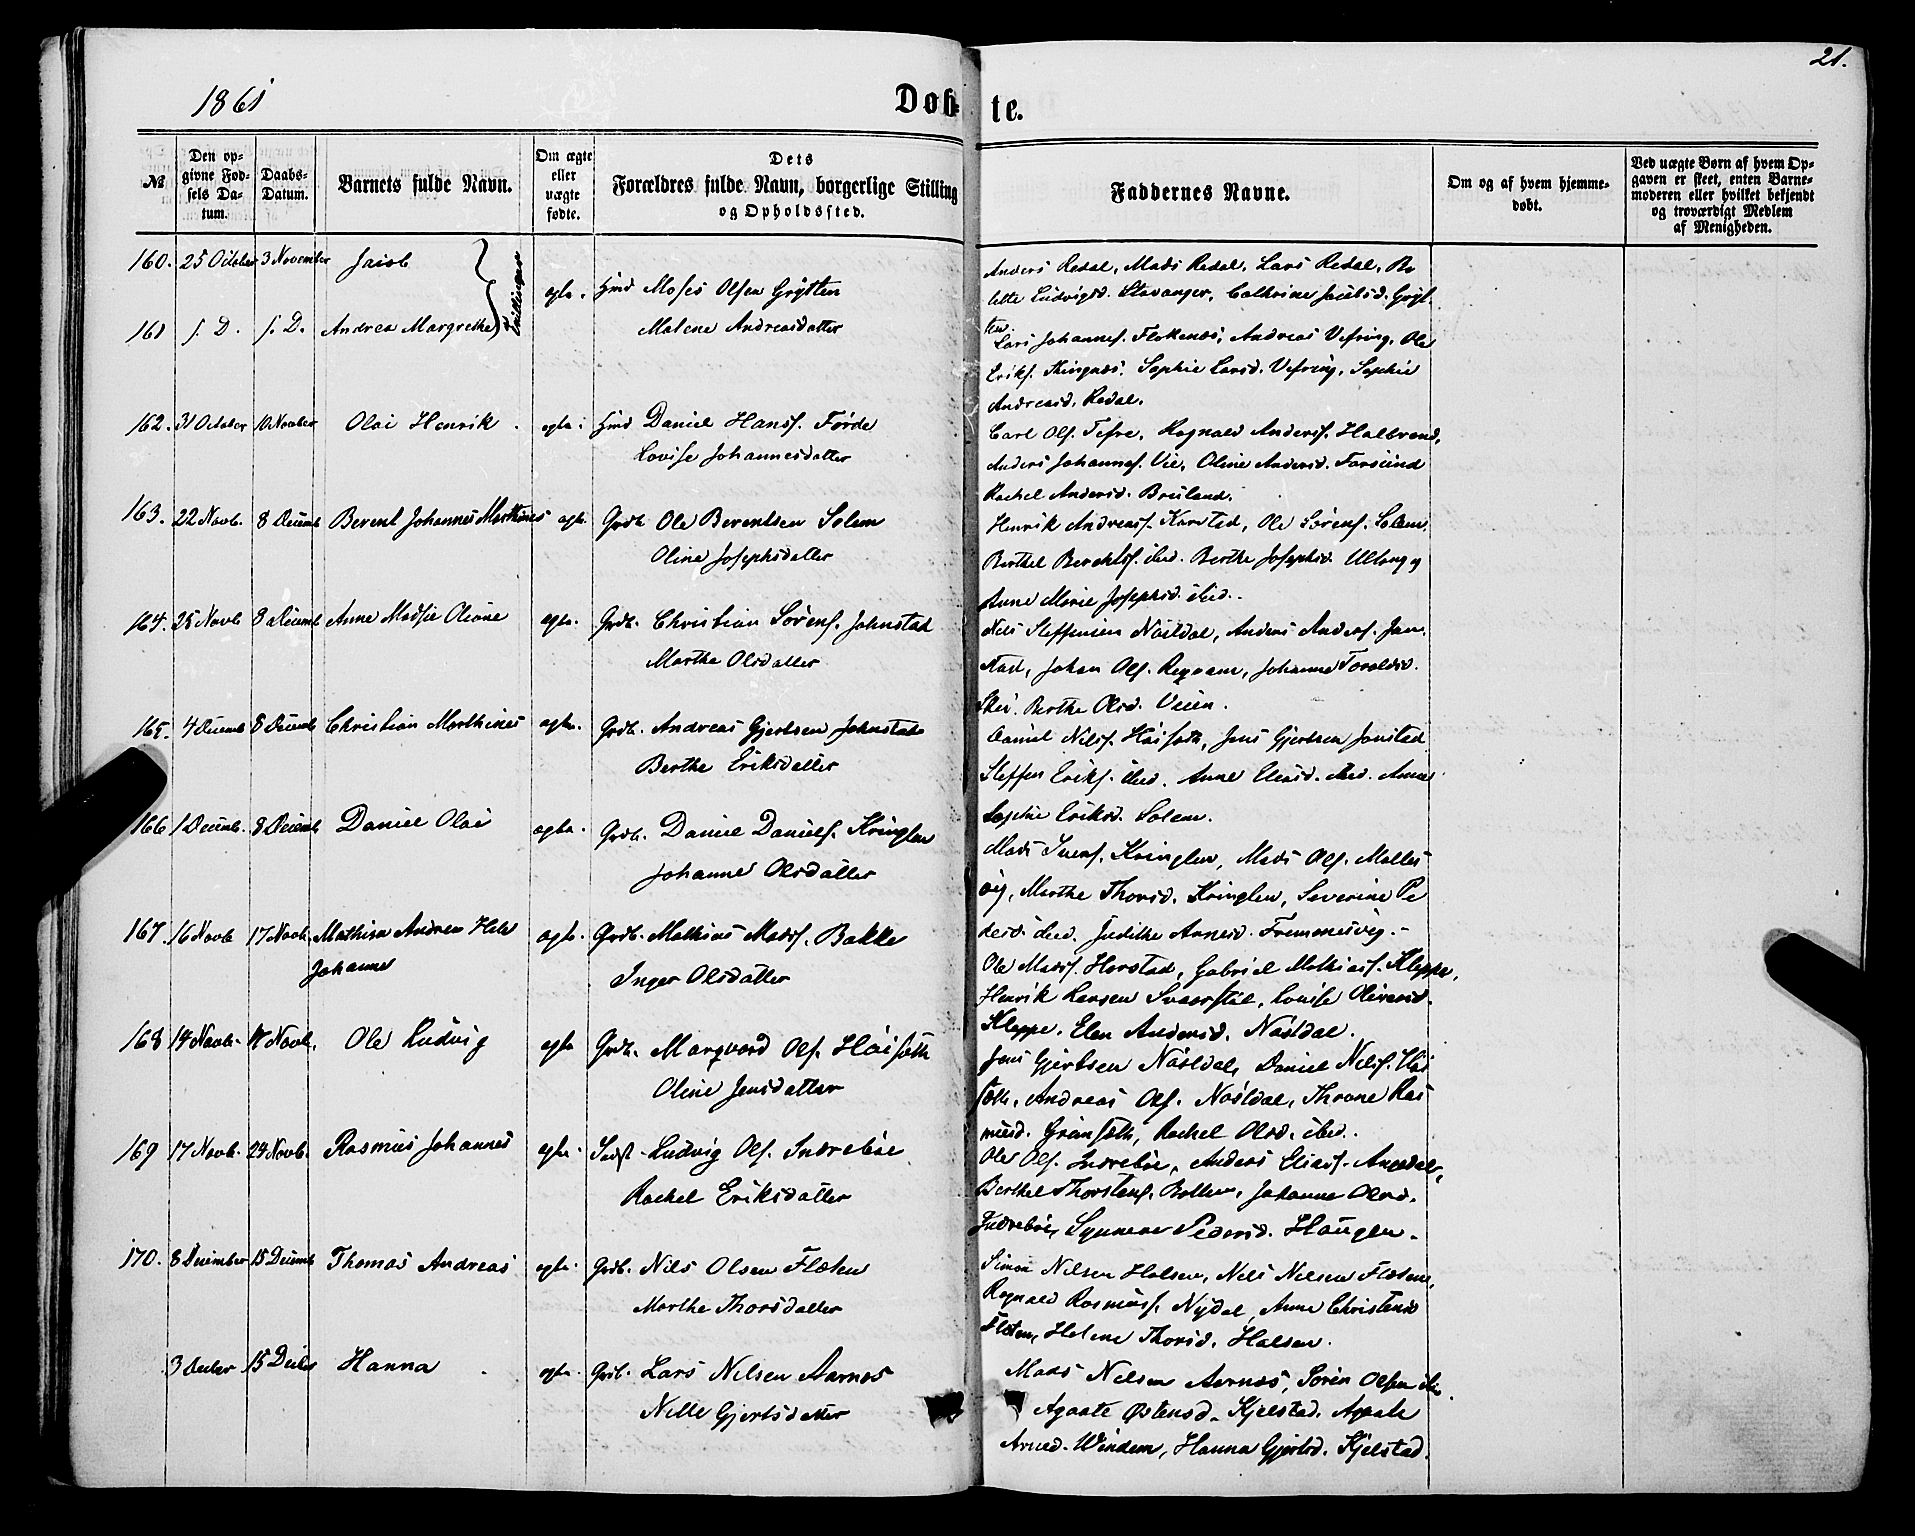 1861
Døb-
te.
21.
№
Den op-
givne Fød-
sels Da-
tum.
Daabs-
Datum.
Barnets fulde Navn.
Om ægte
eller
uægte
fødte.
Dets
Forældres fulde Navn, borgerlige Stilling
og Opholdssted.
Faddernes Navne.
Om og af hvem hjemme-
døbt.
Ved uægte Børn af hvem Op-
gaven er skeet, enten Barne-
moderen eller hvilket bekjendt
og troværdigt Medlem
af Menigheden.
160. 25 October 3 November Jacob
Tvillinger
ægte. Hmd Moses Olsen Grytten
161 s. D. s. D. Andrea Margrethe
Malene Andreasdatter
Anders Redal, Mads Redal, Lars Redal, Bo
lette Ludvigsd. Stavanger, Cathrine Jacobsd. Gryt
ten.
Lars Johannes. Flokenæs, Andreas Vefring, Ole
Eriks. Sophie Larsd. Vefring, Sophie
Andreasd. Redal.
162. 31 October 10 Novber Olai Henrik ægte Hmd Daniel Hanss. Førde
Lovise Johannesdatter
Carl Ols. Tefre, Ragnald Anderss. Halbrend,
Anders Johannes. Vie, Oline Andersd. Farsund
Rachel Andersd. Bruland.
163. 22 Novb. 8 Decemb Berent Johannes Marthines ægte. Grdb. Ole Berentsen Solem
Oline Josephsdatter
Henrik Andreass. Karstad, Ole Sørens. Solem,
Berthel Berents. ibid. Berthe Josephsd. Ullang
Anne Marie Josephsd. ibid.
164. 25 Novb 8 Decemb Anne Madsie Oleone ægte. Grdb. Christian Sørens. Johnstad
Marthe Olsdatter
Nils Steffensen Nastdal, Anders Anders. Jon
stad, Johan Ols. Johanne Toraldsd.
Skei. Berthe Olsd. Veien.
165. 4 Decemb 8 Decemb Christian Marthines ægte. Grdb. Andreas Gjertsen Johnstad
Berthe Eriksdatter
Daniel Nilss. Høisæth, Jens Gjertsen Jonstad
Steffen Eriks. ibid. Anne Eliasd. ibid. Anne
Sophie Eriksd. Solem.
166 1 Decemb. 8 Decemb Daniel Olai ægte. Grdb. Daniel Daniels. Kringlen
Johanne Olsdatter
Mads Ivers. Kringlen, Mads Ols. Malles
vig, Marthe Thorsd. Kringlen, Severine Pe
dersd. ibid. Judithe Arnesd. Fremmesvig.
167. 16 Novb 17 Novb. Mathisa Andrea
Johanne
ægte. Grdb. Mathias Mads. Bakke
Inger Olsdatter
Ole Mads. Horstad, Gabriel Mathiass. Kleppe,
Henrik Larsen Lovise Oliversd.
Kleppe, Elen Andersd. Nastdal.
168 14 Novb. 17 Novb. Ole Ludvig ægte Grdb. Marqvard Ols. Høisæth
Oline Jensdatter
Jens Gjertsen Nastdal, Daniel Nilss. Høi
sæth, Andreas Ols. Nastdal, Throne Ras
musd. Grønsæth, Rachel Olsd. ibid.
169 17 Novb. 24 Novb. Rasmus Johannes ægte. Indst Ludvig Ols. Indrebøe
Rachel Eriksdatter
Ole Ols. Indrebøe, Anders Eliass. Angedal,
Berthel Thorstens. Botten, Johanne Olsd.
Indrebøe, Synneve Pedersd. Haugen.
170. 8 December 15 Decemb Thomas Andreas ægte. Grdb. Nils Olsen Flæten
Marthe Thorsdatter
Simon Nilsen Halsen, Nils Nilsen Flæten,
Ragnald Rasmuss. Nydal, Anne Christensd
Flæten, Helene Thorsd. Halsen.
3 Decber 15 Decber Hanna ægte. Grdb. Lars Nilsen Aarnæs
Nille Gjertsdatter
Mads Nilsen Aarnæs, Søren Olsen ibid.
Agaate Østensd. Kjelstad. Agaate
Arned. Winden, Hanna Gjertsd. Kjelstad.